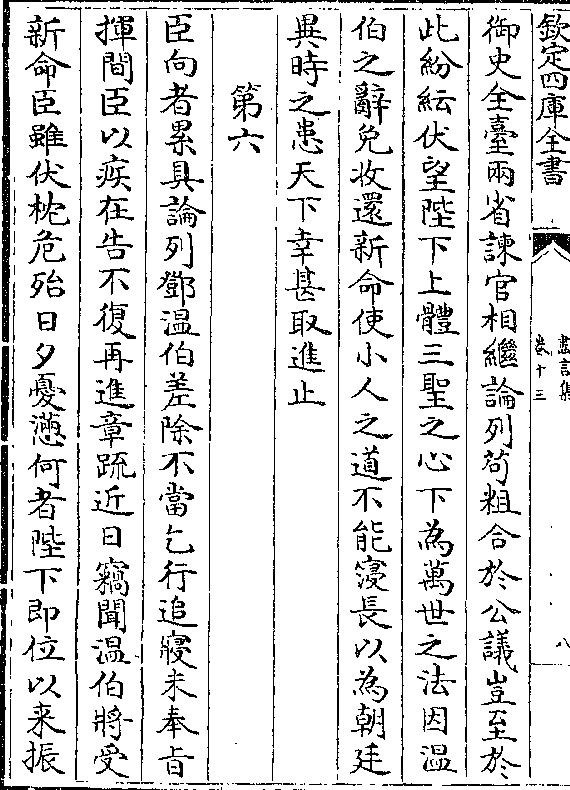 欽定四庫全書
盡言集
卷十三
八
御史全臺兩省諫官相繼論列茍粗合於公議豈至於
此紛紜伏望陛下上體三聖之心下為萬世之法因温
伯之辭免收還新命使小人之道不能寖長以為朝廷
異時之患天下幸甚取進止
第六
臣向者累具論列鄧温伯差除不當乞行追寢未奉旨
揮間臣以疾在告不復再進章疏近日竊聞温伯將受
新命臣雖伏枕危殆日夕憂懣何者陛下即位以来振